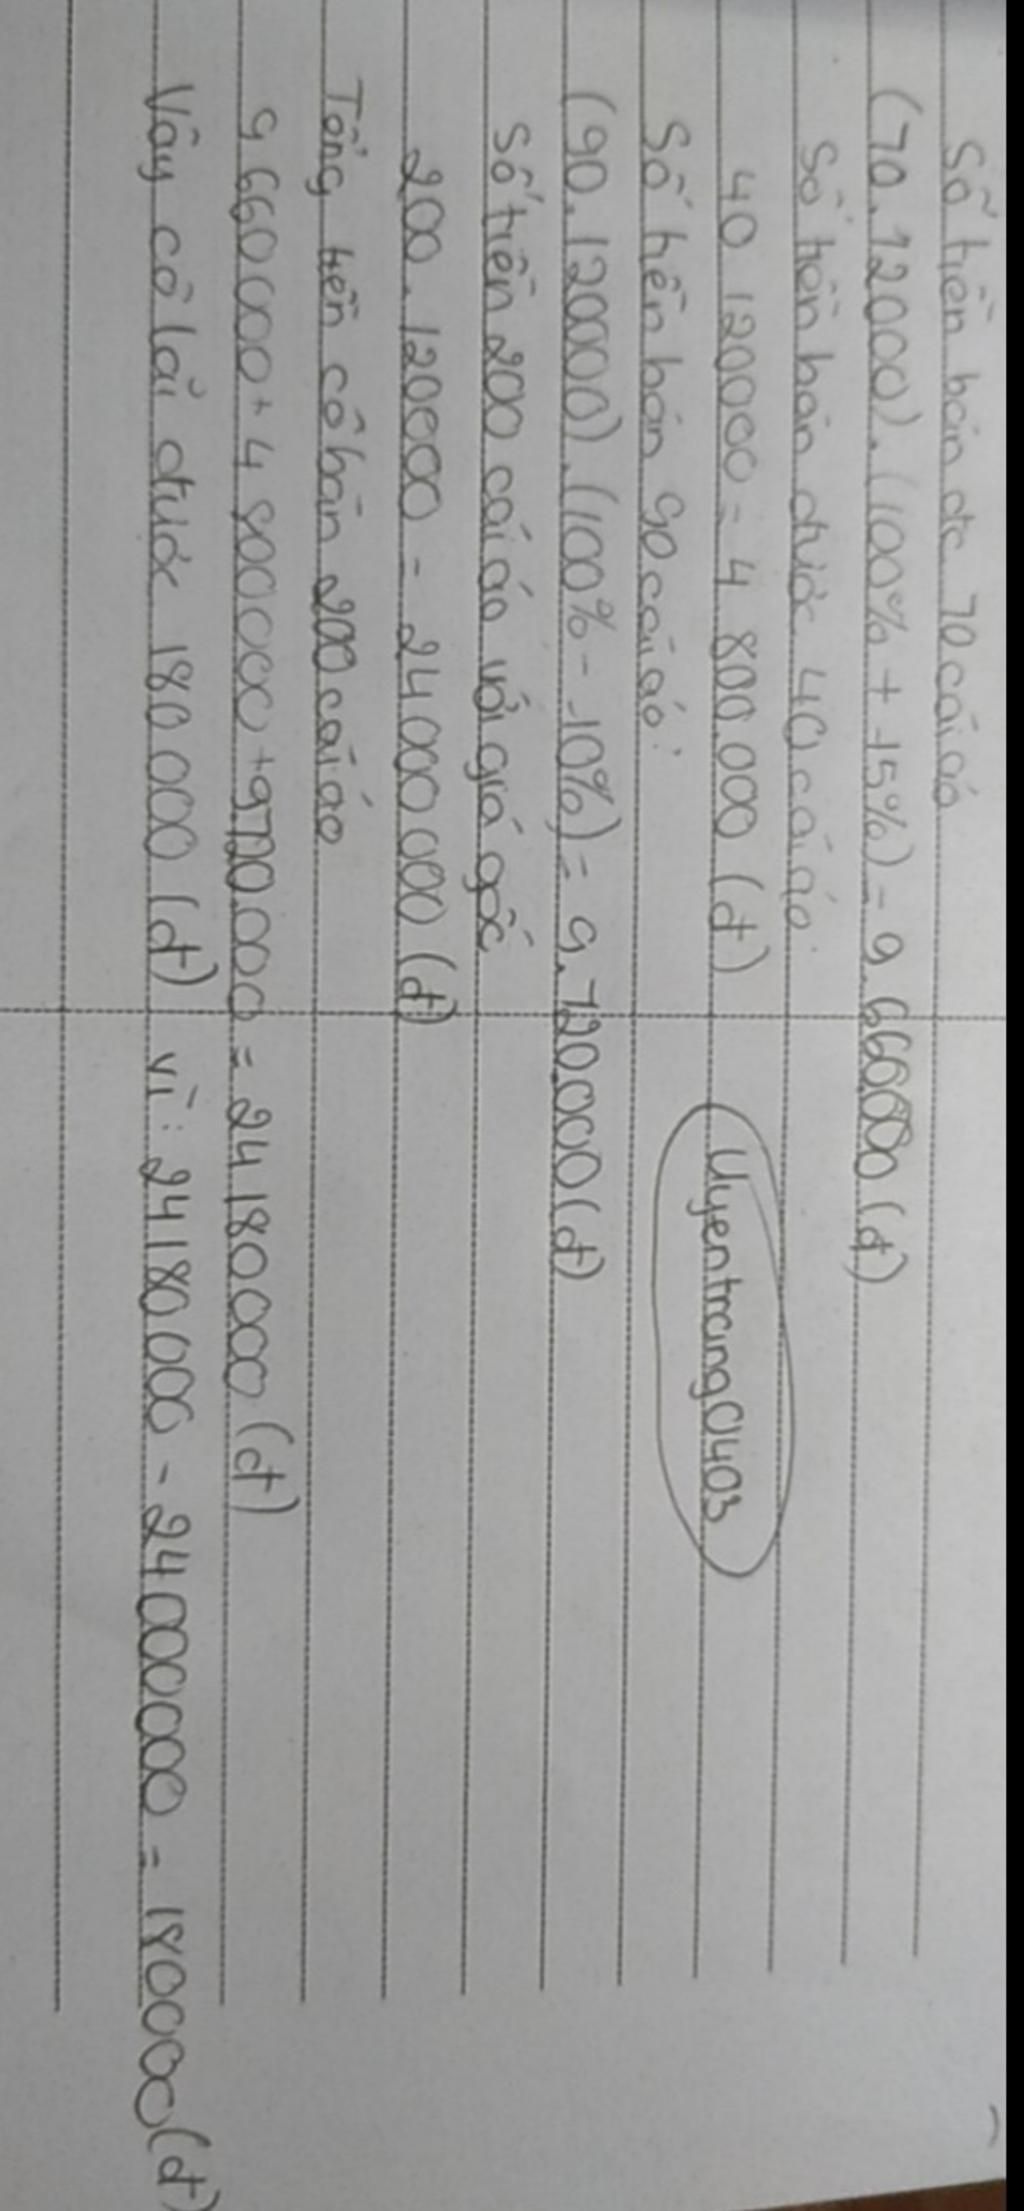 Số tiền bán đc 70 cái áo
(70.12000).(100% + 15%) = 9.660000 (đ)
Số tiền bán được 40 cái áo:
40 120000 = 4 800.000 (đ)
Uyentrang0403
Số tiền bán 90 cái áo:
(90.120000).(100% - 10%) = 9.720.000 (đ)
Số tiền 200 cái áo với giá gốc
200.120000 = 24000000 (đ)
Tổng tiền cô bán 200 cái áo
9660000 + 4 800000 + 9720.000 = 24180000 (đ)
Vậy cô lãi được 180000 (đ) vì: 24180000 - 24000000 = 180000 (đ)